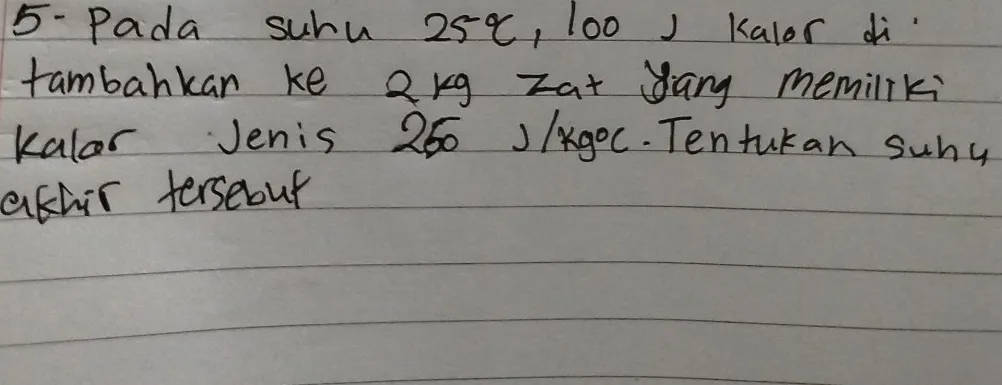 5- Pada suhu 25°C, 100 J Kalor di
tambahkan ke 2 kg Zat yang memiliki
Kalor Jenis 250 J/kg°C. Tentukan suhu
akhir tersebut